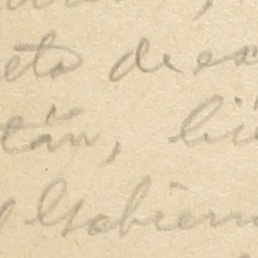 eto de ex
tán, bie
y Gobiern